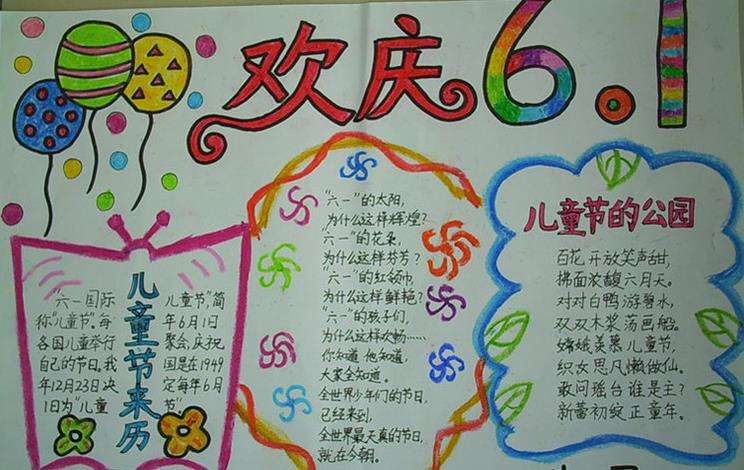 欢庆6.1
儿童节来历
"六一国际
称"儿童节"。每
各国儿童举行
自己的节日。我
年12月23日决
1日为"儿童
儿童节",简
年6月1日
聚会,庆祝
国是在1949
定每年6月
节"
"六一"的太阳,
为什么这样辉煌?
六一"的花朵,
为什么这样芬芳?
"六一"的红领巾
为什么这样鲜艳?
"六一"的孩子们,
为什么这样欢畅……
你知道 他知道,
大家全知道。
全世界少年们的节日,
已经来到,
全世界最天真的节日,
就在今朝。
儿童节的公园
百花开放笑声甜,
拂面浓馥六月天。
对对白鸭游碧水,
双双木桨荡画船。
嫦娥羡慕儿童节,
织女思凡懒做仙。
敢问瑶台谁是主?
新蕾初绽正童年。